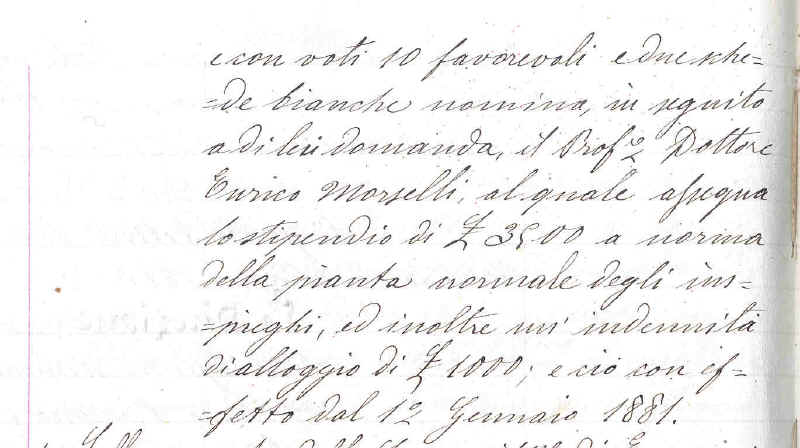 e con voti 10 favorevoli e due sche=
=de bianche nomina, in seguito
a di lui domanda, il Prof.r Dottore
Enrico Morselli, al quale assegna
lo stipendio di £ 3500 a norma
della pianta normale degli im=
=pieghi, ed inoltre un' indennità
di alloggio di £ 1000; e ciò con ef=
=fetto dal 1º Gennaio 1881.